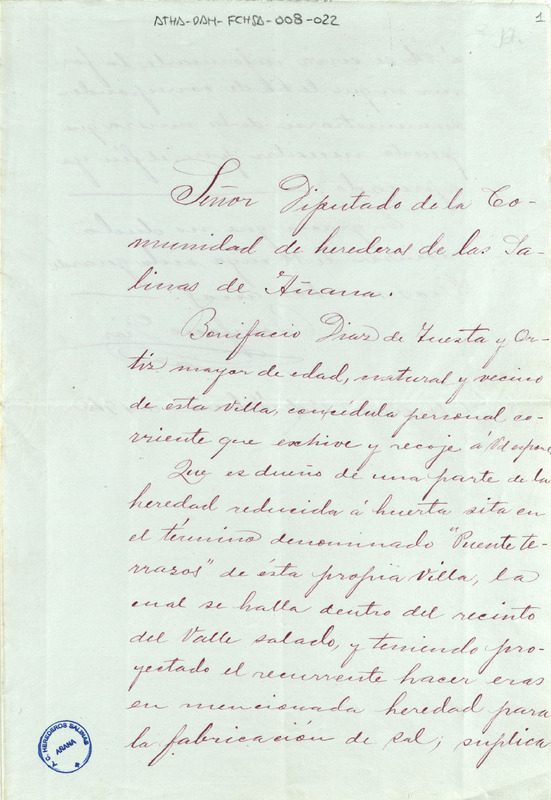 ATHA-DAH-FCHSA-008-022
1
Señor Diputado de la Co-
munidad de herederos de las Sa-
linas de Añana.
Bonifacio Diaz de Tuesta y Or-
tiz mayor de edad, natural y vecino
de esta villa, con cédula personal co-
rriente que exhive y recoje á Vd espone
Que es dueño de una parte de la
heredad reducida á huerta sita en
el término denominado "Puente te-
rrazos" de ésta propia Villa, la
cual se halla dentro del recinto
del Valle salado, y teniendo pro-
yectado el recurrente hacer eras
en mencionada heredad para
la fabricación de sal; suplica
HEREDEROS SALINAS
AÑANA